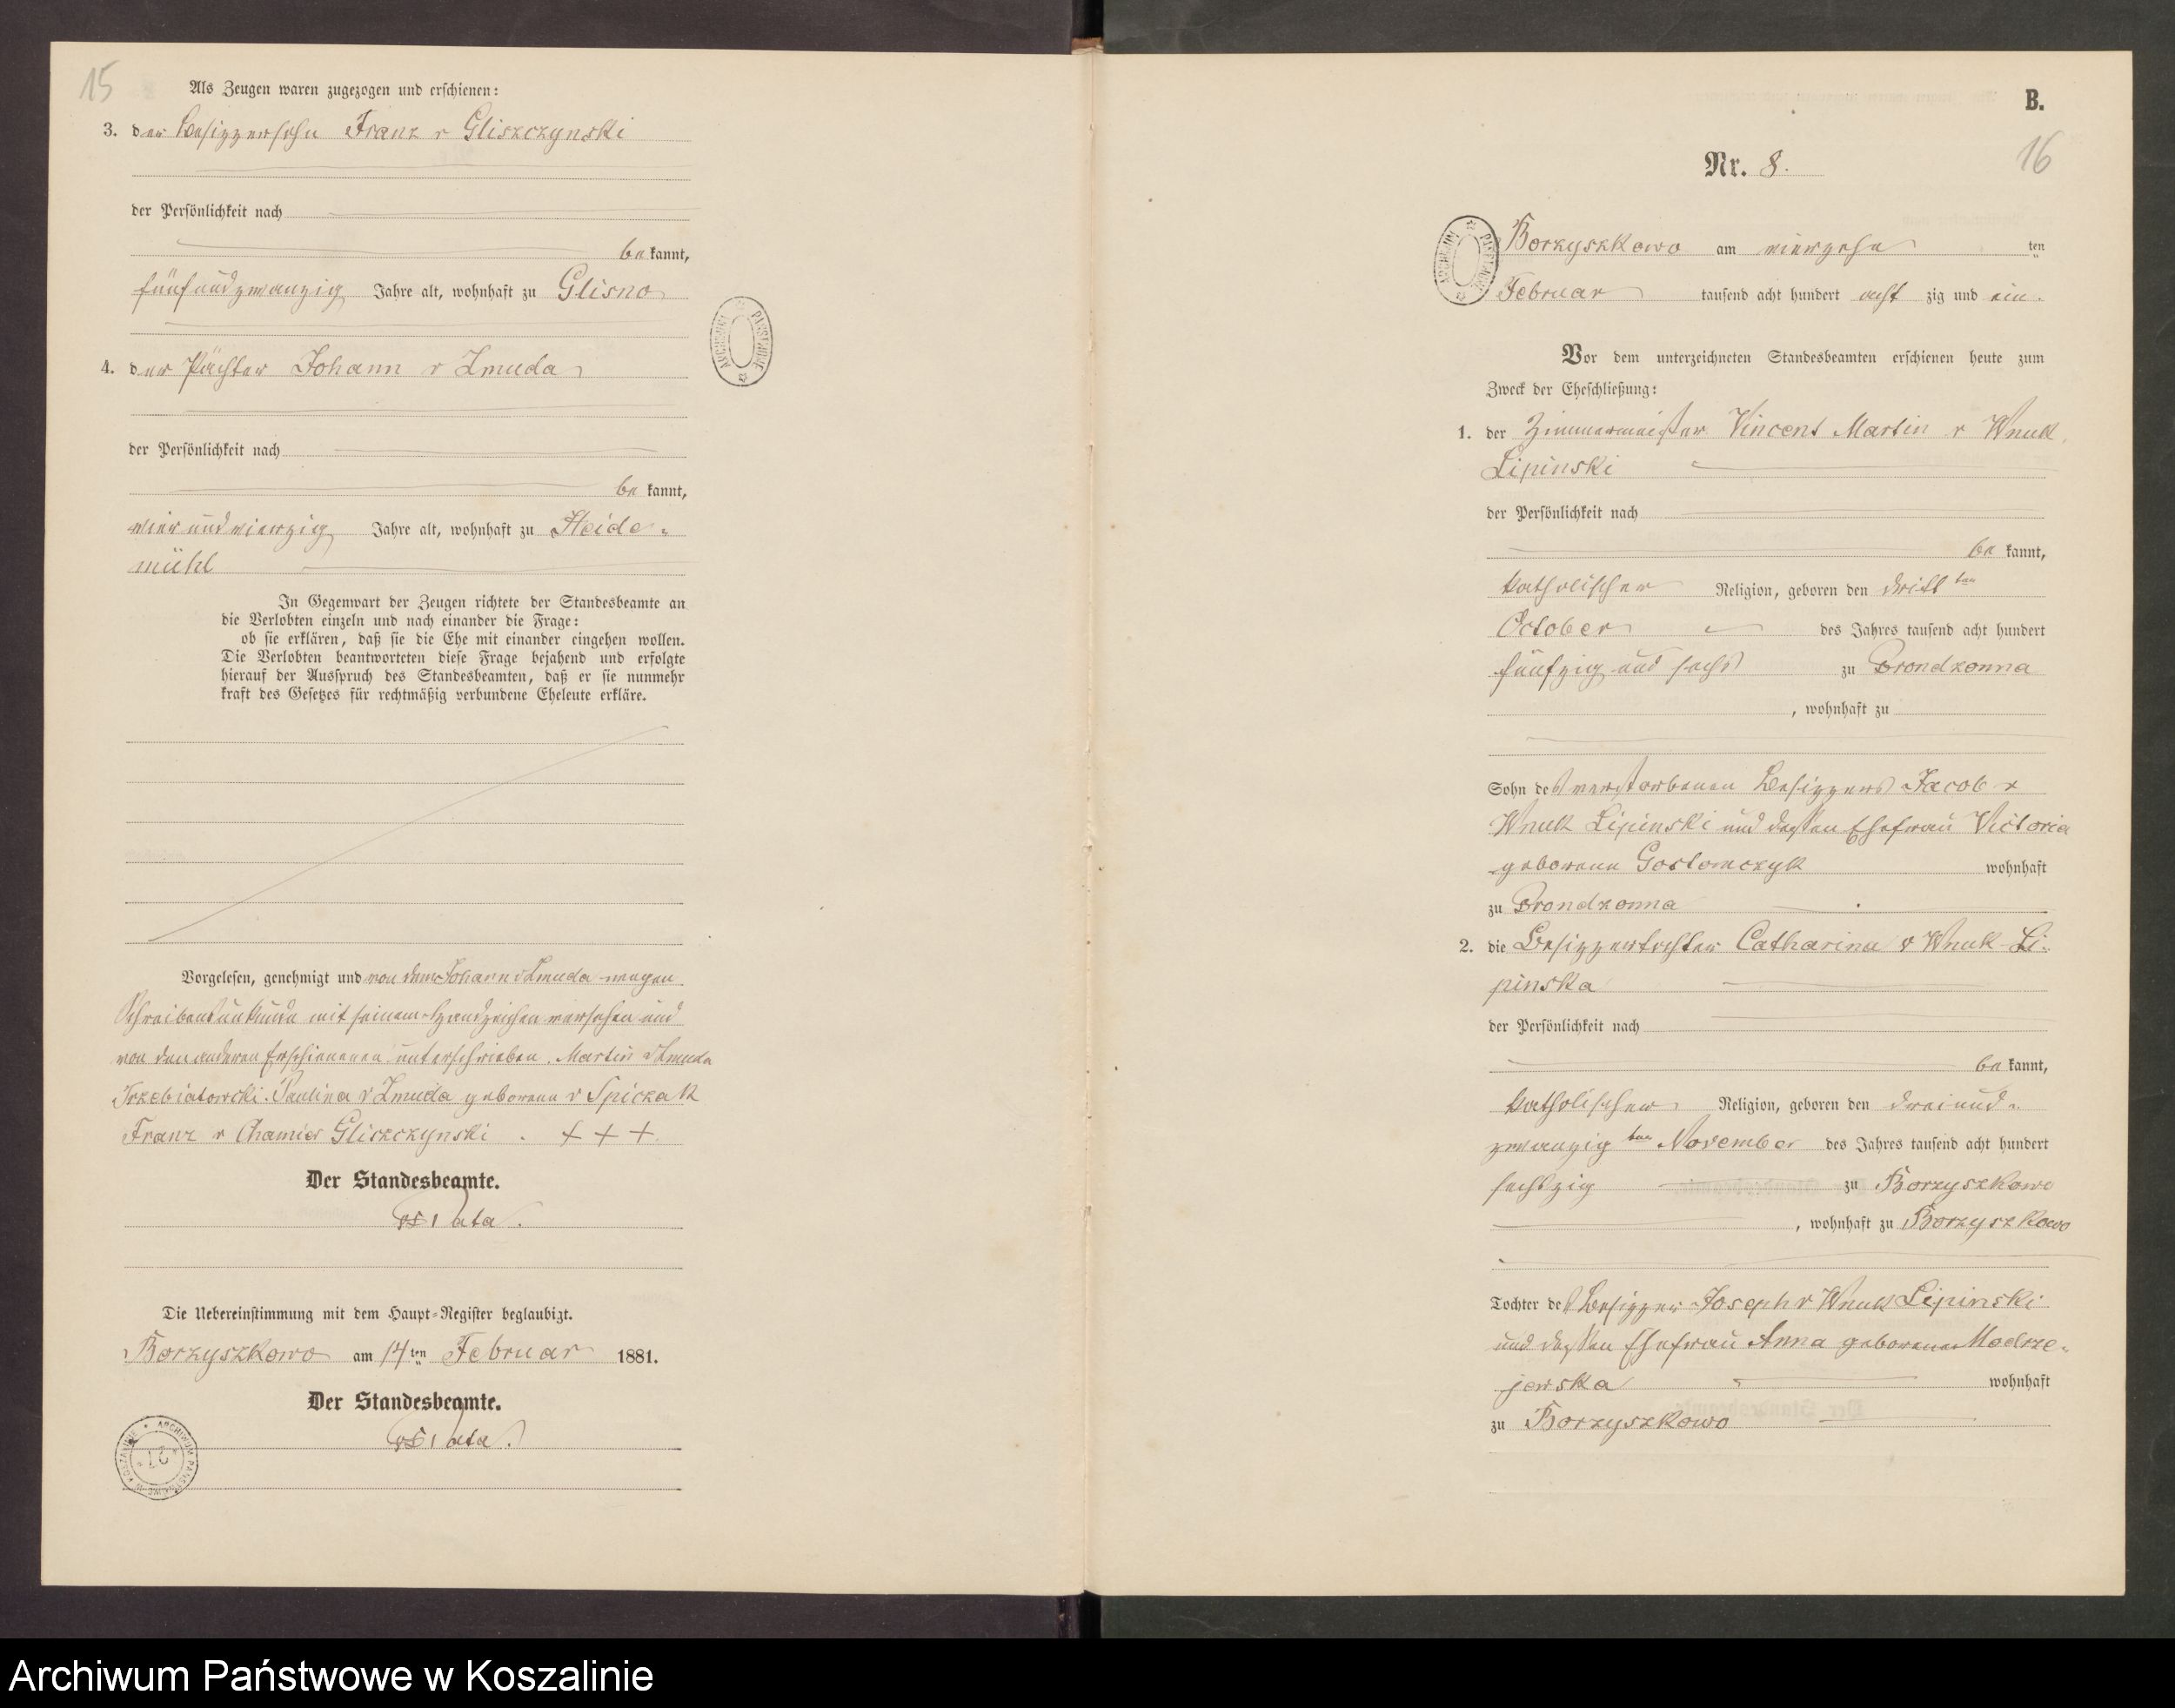 15
Als Zeugen waren zugezogen und erschienen:
3. der Besitzersohn Franz v Gliszczynski
der Persönlichkeit nach
be kannt,
fünfundzwanzig Jahre alt, wohnhaft zu Glisno
4. der Pächter Johann v Zmuda
der Persönlichkeit nach
be kannt,
vier und vierzig Jahre alt, wohnhaft zu Heide-
mühl
In Gegenwart der Zeugen richtete der Standesbeamte an
die Verlobten einzeln und nach einander die Frage:
ob sie erklären, daß sie die Ehe mit einander eingehen wollen.
Die Verlobten beantworteten diese Frage bejahend und erfolgte
hierauf der Ausspruch des Standesbeamten, daß er sie nunmehr
kraft des Gesetzes für rechtmäßig verbundene Eheleute erkläre.
Vorgelesen, genehmigt und von dem Johann v Zmuda wegen
Schreibensunkunde mit seinem Handzeichen versehen und
von den anderen Erschienenen unterschrieben. Martin v Zmuda
Trzebiatowski. Paulina v Zmuda geborene v Spiczak
Franz v Chamier Gliszczynski . + + +.
Der Standesbeamte.
Die Uebereinstimmung mit dem Haupt-Register beglaubigt.
Borzyszkowo am 14ten Februar 1881.
Der Standesbeamte.
ARCHIWUM PAŃSTWOWE
B.
16
Nr. 8.
Borzyszkowo am vierzehn ten
Februar tausend acht hundert acht zig und ein.
Vor dem unterzeichneten Standesbeamten erschienen heute zum
Zweck der Eheschließung:
1. der Zimmermeister Vincent Martin v Wnuk
Lipinski
der Persönlichkeit nach
be kannt,
katholischer Religion, geboren den dritt ten
October des Jahres tausend acht hundert
fünfzig und sechs zu Brondzonna
, wohnhaft zu
Sohn des verstorbenen Besitzers Jacob v
Wnuk Lipinski und dessen Ehefrau Victoria
geborene Gostomczyk wohnhaft
zu Brondzonna
2. die Besitzertochter Catharina v Wnuk Li-
pinska
der Persönlichkeit nach
be kannt,
katholischer Religion, geboren den dreiund-
zwanzig ten November des Jahres tausend acht hundert
sechszig zu Borzyszkowo
, wohnhaft zu Borzyszkowo
Tochter des Besitzer Joseph v Wnuk Lipinski
und dessen Ehefrau Anna geborene Modrze-
jewska wohnhaft
zu Borzyszkowo
Archiwum Państwowe w Koszalinie